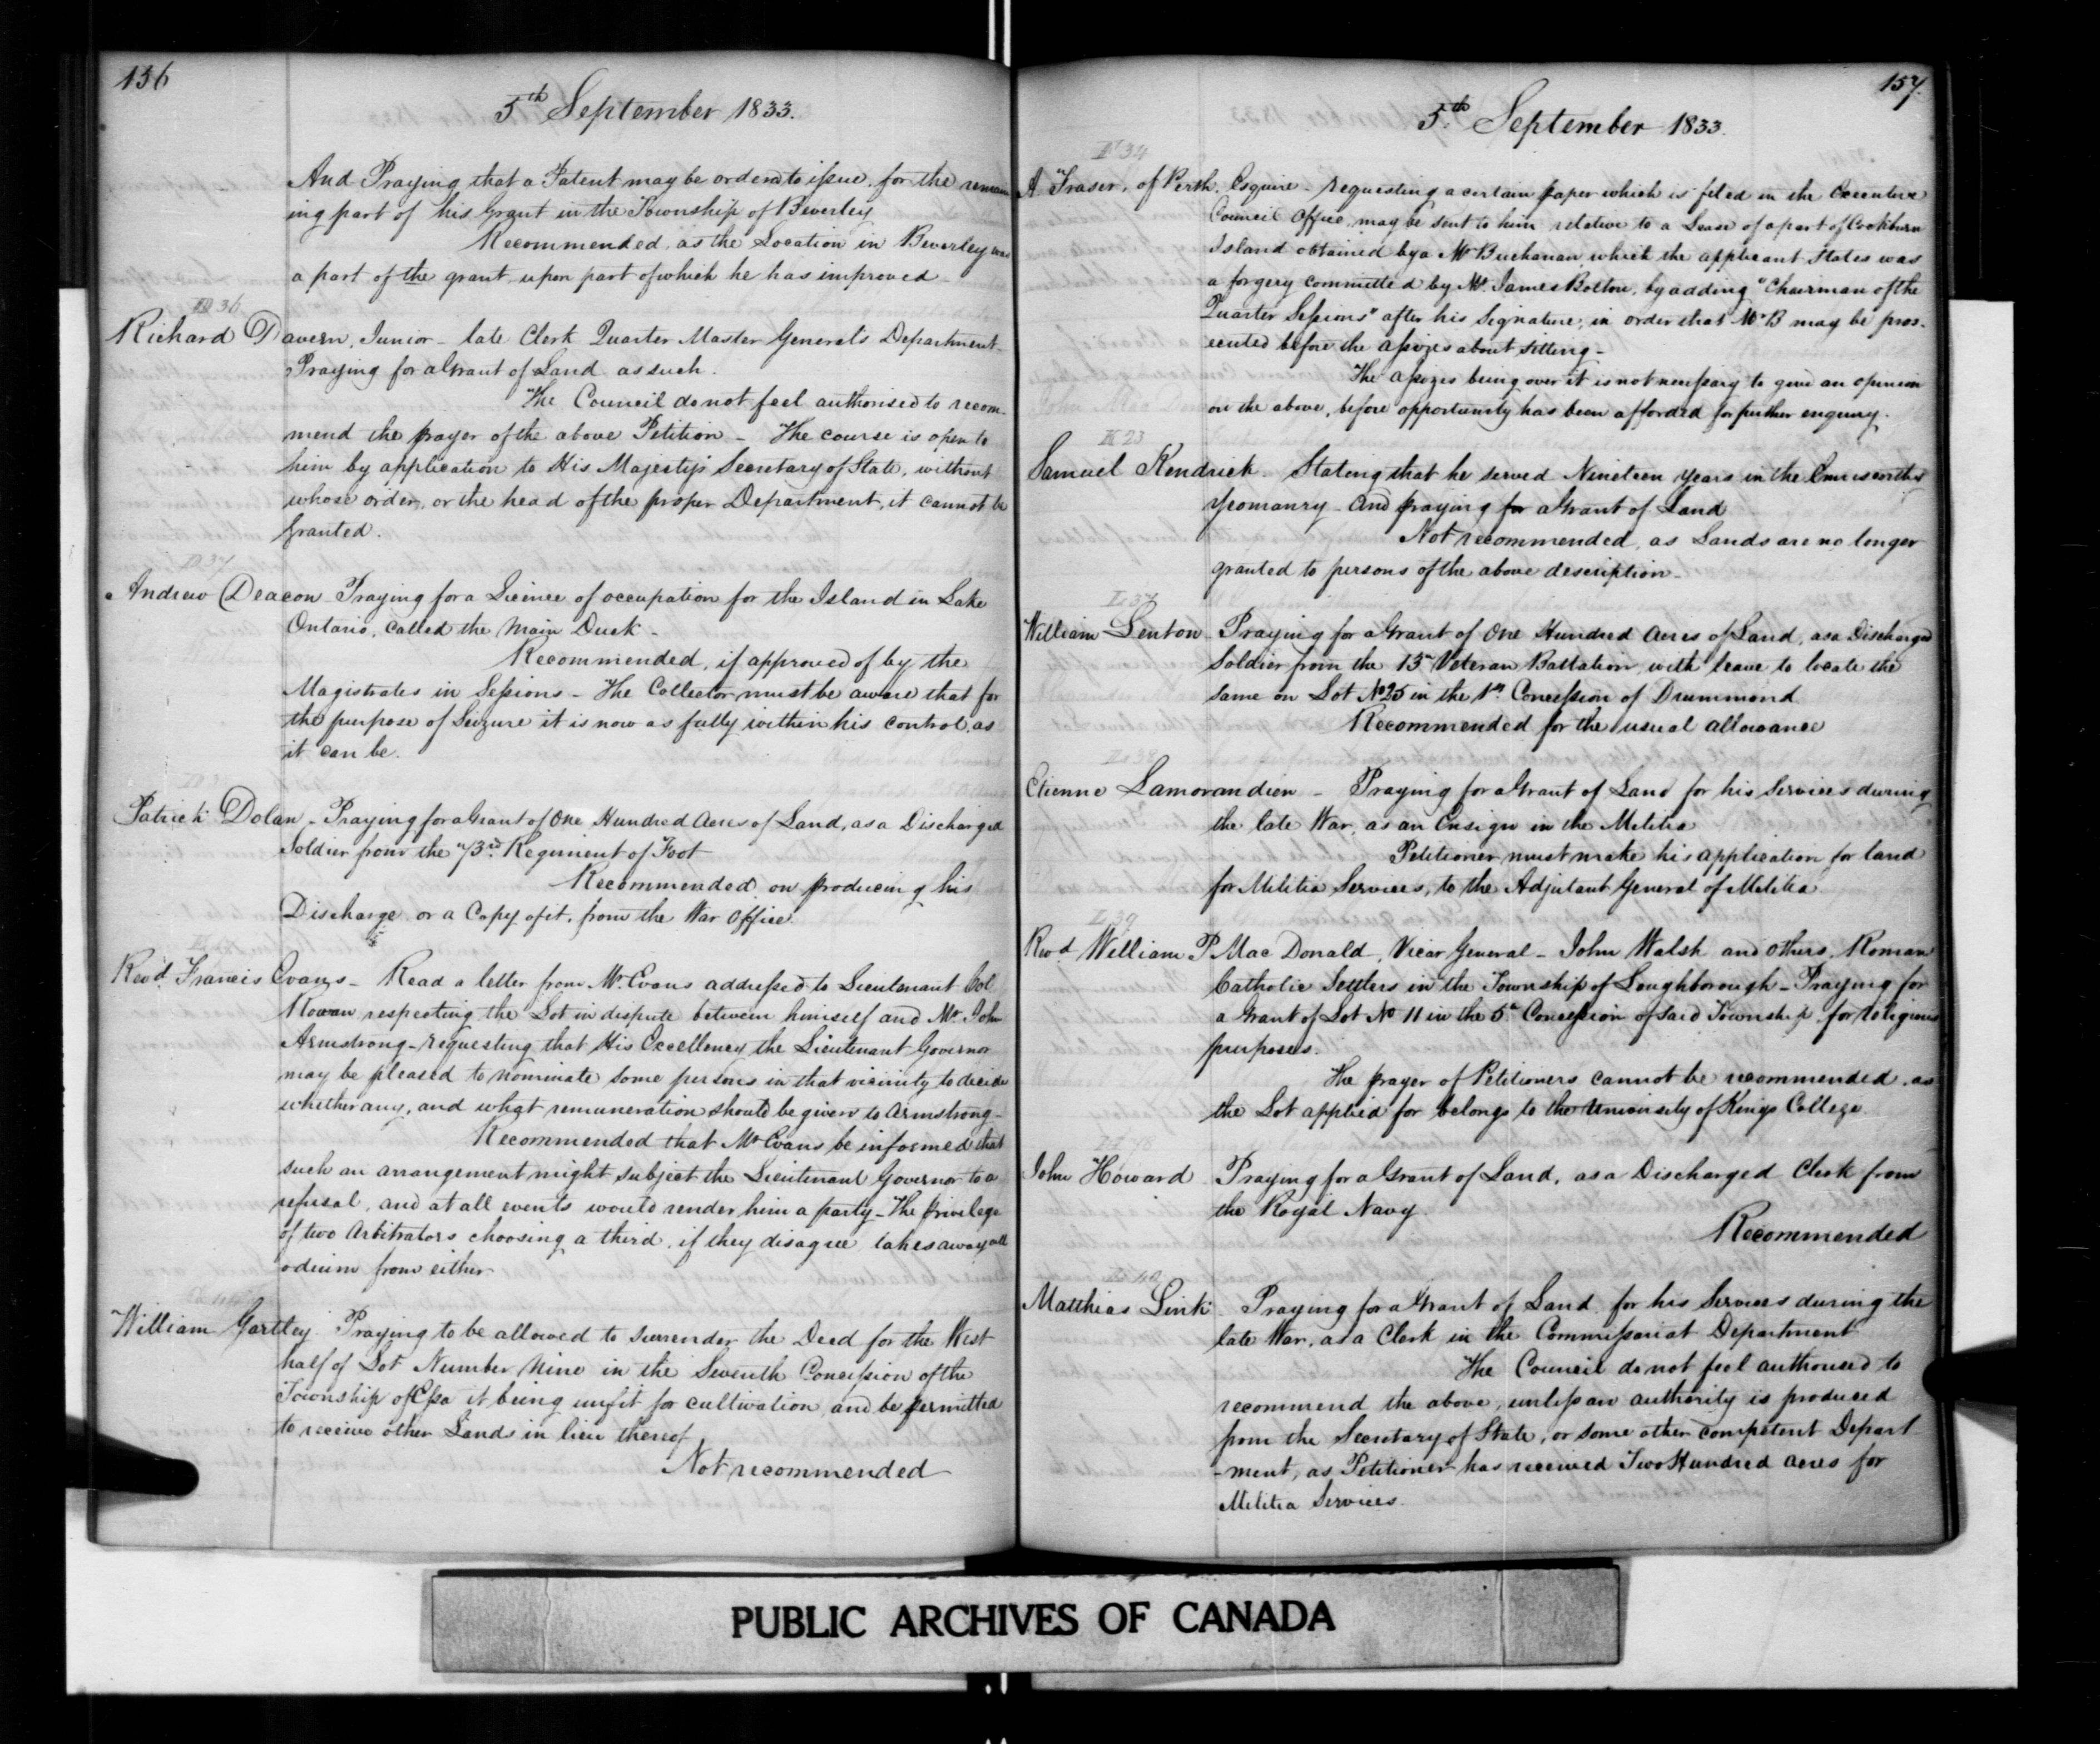 156
5th September 1833.
And Praying that a Patent may be ordered to issue, for the remain
ing part of his Grant in the Township of Beverley
Recommended, as the Location in Beverley was
a part of the grant upon part of which he has improved
D 36
Richard Davern, Junior - late Clerk Quarter Master General's Department -
Praying for a Grant of Land as such.
The Council do not feel authorised to recom-
mend the prayer of the above Petition - The course is open to
him by application to His Majesty's Secretary of State, without
whose order, or the head of the proper Department, it cannot be
Granted.
D 37
Andrew Deacon Praying for a Licence of occupation for the Island in Lake
Ontario, called the Main Duck -
Recommended, if approved of by the
Magistrates in Sessions - The Collector must be aware that for
the purpose of Seizure it is now as fully within his control, as
it can be.
Patrick Dolan - Praying for a Grant of One Hundred Acres of Land, as a Discharged
Soldier from the 73rd Regiment of Foot
Recommended on producing his
Discharge or a Copy of it, from the War Office.
Revd. Francis Evans - Read a letter from Mr. Evans addressed to Lieutenant Col.
Rowan respecting the Lot in dispute between himself and Mr. John
Armstrong - requesting that His Excellency the Lieutenant Governor
may be pleased to nominate some persons in that vicinity to decide
whether any, and what remuneration should be given to Armstrong -
Recommended that Mr. Evans be informed that
such an arrangement might subject the Lieutenant Governor to a
refusal, and at all events would render him a party - The privilege
of two Arbitrators choosing a third, if they disagree takes away all
odium from either
William Gartley Praying to be allowed to surrender the Deed for the West
half of Lot Number Nine in the Seventh Concession of the
Township of Essa it being unfit for cultivation, and be permitted
to receive other Lands in lieu thereof
Not recommended
157.
5th September 1833.
F 34
A Fraser, of Perth, Esquire - Requesting a certain paper which is filed in the Executive
Council Office, may be sent to him relative to a Lease of a part of Cockburn
Island obtained by a Mr Buchanan, which the applicant States was
a forgery committed by Mr. James Bolton, by adding "Chairman of the
Quarter Sessions" after his Signature; in order that Mr B may be pros-
ecuted before the Assizes about sitting -
The Assizes being over it is not necessary to give an opinion
on the above, before opportunity has been afforded for further enquiry.
K 23
Samuel Kendrick. Stating that he served Nineteen years in the Enniscorthy
Yeomanry - And praying for a Grant of Land
Not recommended, as Lands are no longer
granted to persons of the above description -
L 37
William Lenton - Praying for a Grant of One Hundred Acres of Land, as a Discharged
Soldier from the 13th Veteran Battalion, with leave to locate the
same on Lot No 25 in the 1st. Concession of Drummond
Recommended for the usual allowance
L 38
Etienne Lamorandien - Praying for a Grant of Land for his Services during
the late War, as an Ensign in the Militia
Petitioner must make his application for land
for Militia Services, to the Adjutant General of Militia.
L 39
Revd. William P. Mac Donald, Vicar General - John Walsh and others, Roman
Catholic Settlers in the Township of Loughborough - Praying for
a Grant of Lot No 11 in the 5th Concession of said Township for religious
purposes.
The prayer of Petitioners cannot be recommended, as
the Lot applied for belongs to the University of Kings College.
John Howard Praying for a Grant of Land, as a Discharged Clerk from
the Royal Navy
Recommended
L 40
Matthias Link - Praying for a Grant of Land for his Services during the
late War, as a Clerk in the Commissariat Department
The Council do not feel authorised to
recommend the above, unless an authority is produced
from the Secretary of State, or some other competent Depart
-ment, as Petitioner has received Two Hundred Acres for
Militia Services.
PUBLIC ARCHIVES OF CANADA